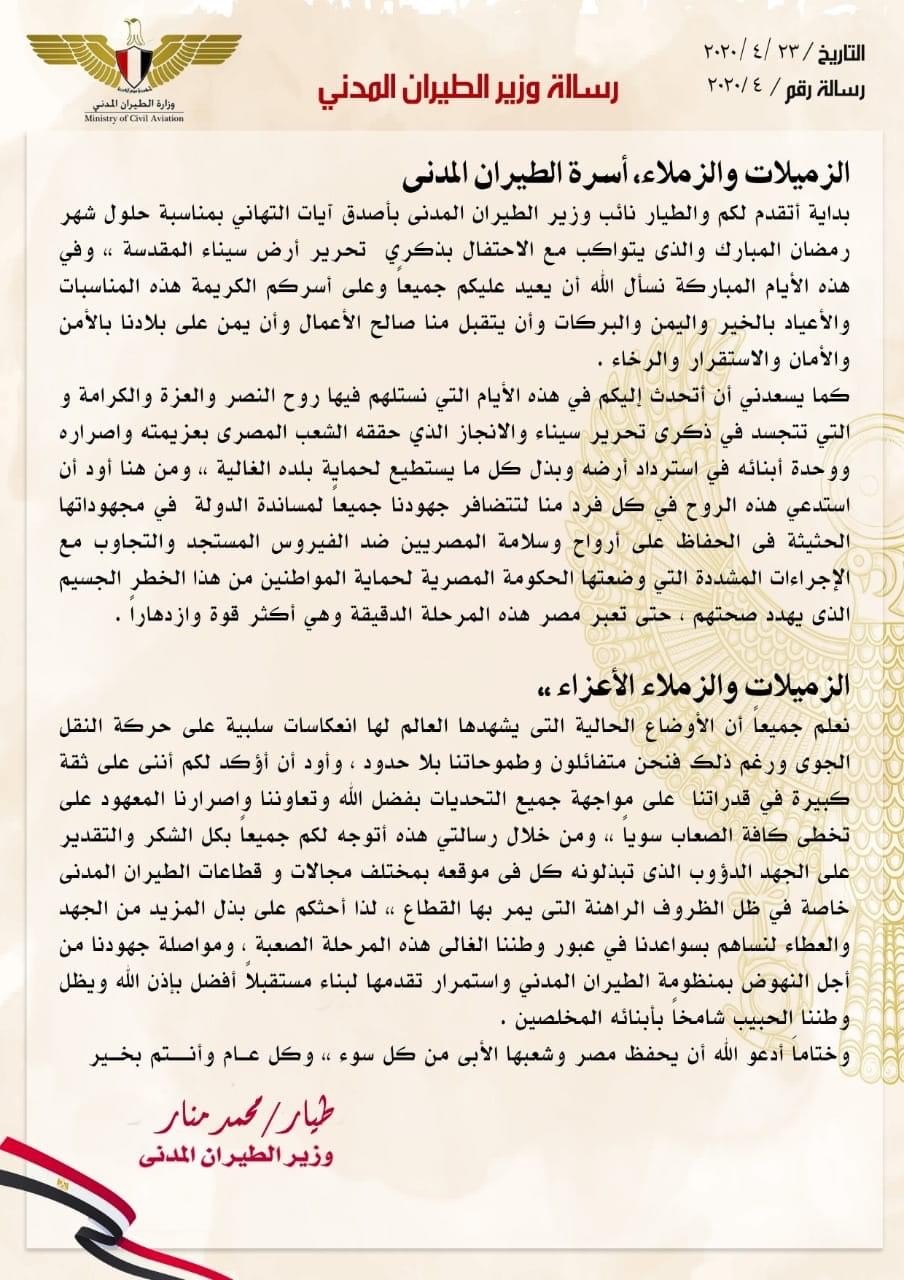 التاريخ / ٢٣ /٤ /٢٠٢٠
رسالة رقم / ٤ /٢٠٢٠
رسالة وزير الطيران المدني
وزارة الطيران المدني
Ministry of Civil Aviation
الزميلات والزملاء، أسرة الطيران المدنى
بداية أتقدم لكم والطيار نائب وزير الطيران المدنى بأصدق آيات التهاني بمناسبة حلول شهر
رمضان المبارك والذى يتواكب مع الاحتفال بذكري تحرير أرض سيناء المقدسة ،، وفي
هذه الأيام المباركة نسأل الله أن يعيد عليكم جميعاً وعلى أسركم الكريمة هذه المناسبات
والأعياد بالخير واليمن والبركات وأن يتقبل منا صالح الأعمال وأن يمن على بلادنا بالأمن
والأمان والاستقرار والرخاء .
كما يسعدني أن أتحدث إليكم في هذه الأيام التي نستلهم فيها روح النصر والعزة والكرامة و
التي تتجسد في ذكرى تحرير سيناء والانجاز الذي حققه الشعب المصرى بعزيمته واصراره
ووحدة أبنائه في استرداد أرضه وبذل كل ما يستطيع لحماية بلده الغالية ،، ومن هنا أود أن
استدعي هذه الروح في كل فرد منا لتتضافر جهودنا جميعاً لمساندة الدولة في مجهوداتها
الحثيثة فى الحفاظ على أرواح وسلامة المصريين ضد الفيروس المستجد والتجاوب مع
الإجراءات المشددة التي وضعتها الحكومة المصرية لحماية المواطنين من هذا الخطر الجسيم
الذى يهدد صحتهم ، حتى تعبر مصر هذه المرحلة الدقيقة وهي أكثر قوة وازدهاراً .
الزميلات والزملاء الأعزاء ،،
نعلم جميعاً أن الأوضاع الحالية التى يشهدها العالم لها انعكاسات سلبية على حركة النقل
الجوى ورغم ذلك فنحن متفائلون وطموحاتنا بلا حدود ، وأود أن أؤكد لكم أننى على ثقة
كبيرة في قدراتنا على مواجهة جميع التحديات بفضل الله وتعاوننا وإصرارنا المعهود على
تخطى كافة الصعاب سوياً ،، ومن خلال رسالتي هذه أتوجه لكم جميعاً بكل الشكر والتقدير
على الجهد الدؤوب الذى تبذلونه كل فى موقعه بمختلف مجالات و قطاعات الطيران المدنى
خاصة في ظل الظروف الراهنة التى يمر بها القطاع ،، لذا أحثكم على بذل المزيد من الجهد
والعطاء لنساهم بسواعدنا في عبور وطننا الغالى هذه المرحلة الصعبة ، ومواصلة جهودنا من
أجل النهوض بمنظومة الطيران المدني واستمرار تقدمها لبناء مستقبلاً أفضل بإذن الله ويظل
وطننا الحبيب شامخاً بأبنائه المخلصين .
وختاماً أدعو الله أن يحفظ مصر وشعبها الأبى من كل سوء ،، وكل عـام وأنـــتم بخـــير
طيار/ محمد منار
وزير الطيران المدنى